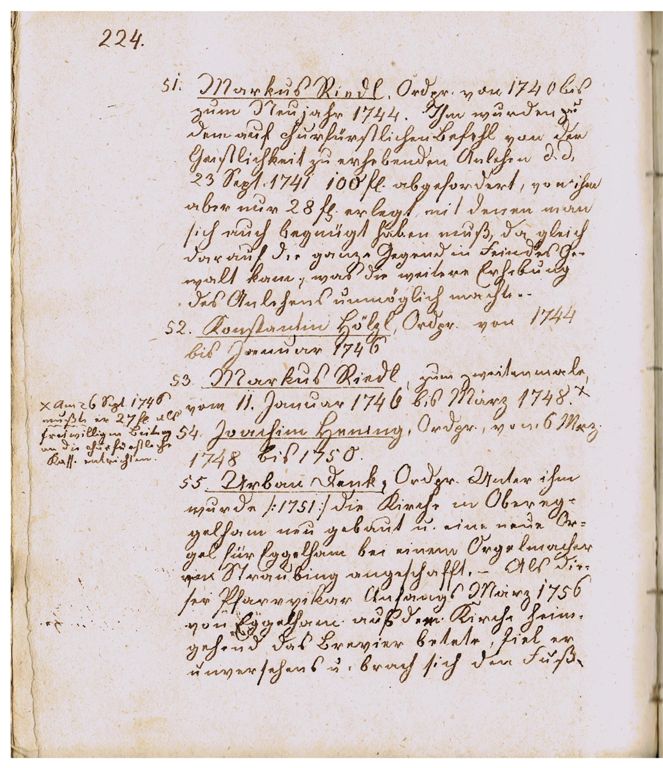 224.
51. Markus Riedl, Ordpr. von 1740 bis
zum Neujahr 1744. Ihm wurden zu
dem auf churfürstlichen Befehl von der
Geistlichkeit zu erhebenden Anlehen d. d.
23 Sept. 1741 100 fl. abgefordert, von ihm
aber nur 28 fl. erlegt, mit denen man
sich auch begnügt haben muß, da gleich
darauf die ganze Gegend in Feindes Ge-
walt kam, was die weitere Erhebung
des Anlehens unmöglich machte.
52. Konstantin Hölzl, Ordpr. von 1744
bis Januar 1746
53. Markus Riedl, zum zweitenmale,
vom 11. Januar 1746 bis März 1748. x
x Am 26 Sept. 1746
mußte er 27 fl. als
freiwilligen Beitrag
an die churfürstliche
Kass. entrichten.
54. Joachim Hening, Ordpr., vom 6 Mrz.
1748 bis 1750.
55 Urban Denk, Ordpr. Unter ihm
wurde /:1751:/ die Kirche in Obereg-
gelham neu gebaut u. eine neue Or-
gel für Eggelham bei einem Orgelmacher
von Straubing angeschafft. – Als die-
ser Pfarrvikar Anfangs März 1756
von Eggelham aus der Kirche heim-
gehend das Brevier betete, fiel er
unversehens u. brach sich den Fuß,